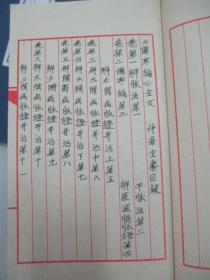 《傷寒論》全文 仲景全書目録
卷第一 辨脉法第一 平脉法第二
卷第二 傷寒例第三 辨痙濕暍脉證第四
辨太陽病脉證并治上第五
卷第三 辨太陽病脉證并治中第六
卷第四 辨太陽病脉證并治下第七
卷第五 辨陽明病脉證并治第八
辨少陽病脉證并治第九
卷第六 辨太陰病脉證并治第十
辨少陰病脉證并治第十一